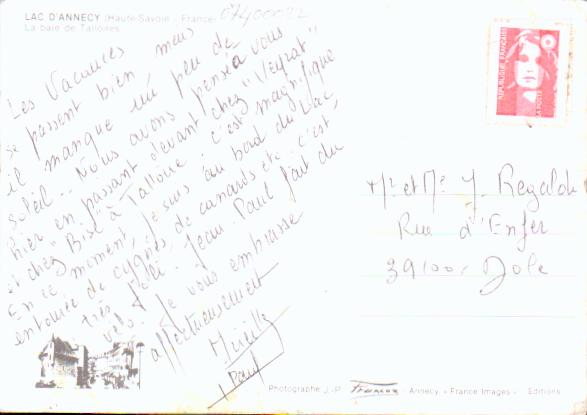 LAC D'ANNECY (Haute-Savoie - France)
La baie de Talloires
07400022
Les vacances
se passent bien mais
il manque un peu de
soleil.. Nous avons pensé a vous
hier en passant devant chez "Veyrat"
et chez "Bise" à Talloire c'est magnifique
En ce moment, je suis au bord du lac,
entourée de cygnes, de canards etc c'est
très joli. Jean. Paul fait du
vélo. Je vous embrasse
affectueusement
Mireille
J Paul
RÉPUBLIQUE FRANÇAISE
LA POSTE
Mr et Me J. Regalde
Rue d'Enfer
39100. Dole
Photographe J.-P. France Annecy « France Images » Editions